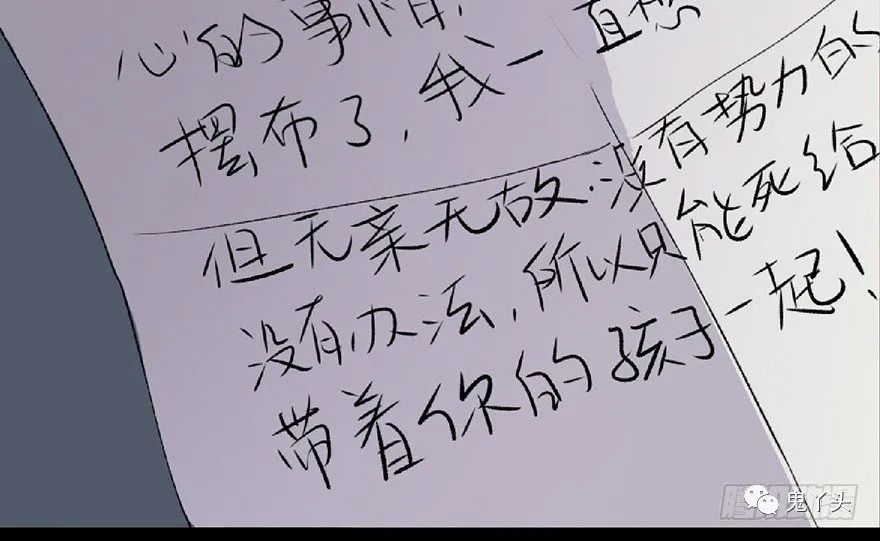 心的事情,
摆布了，我一直想
但无亲无故.没有势力的
没有办法，所以只能死给
带着你的孩子一起！
鬼丫头